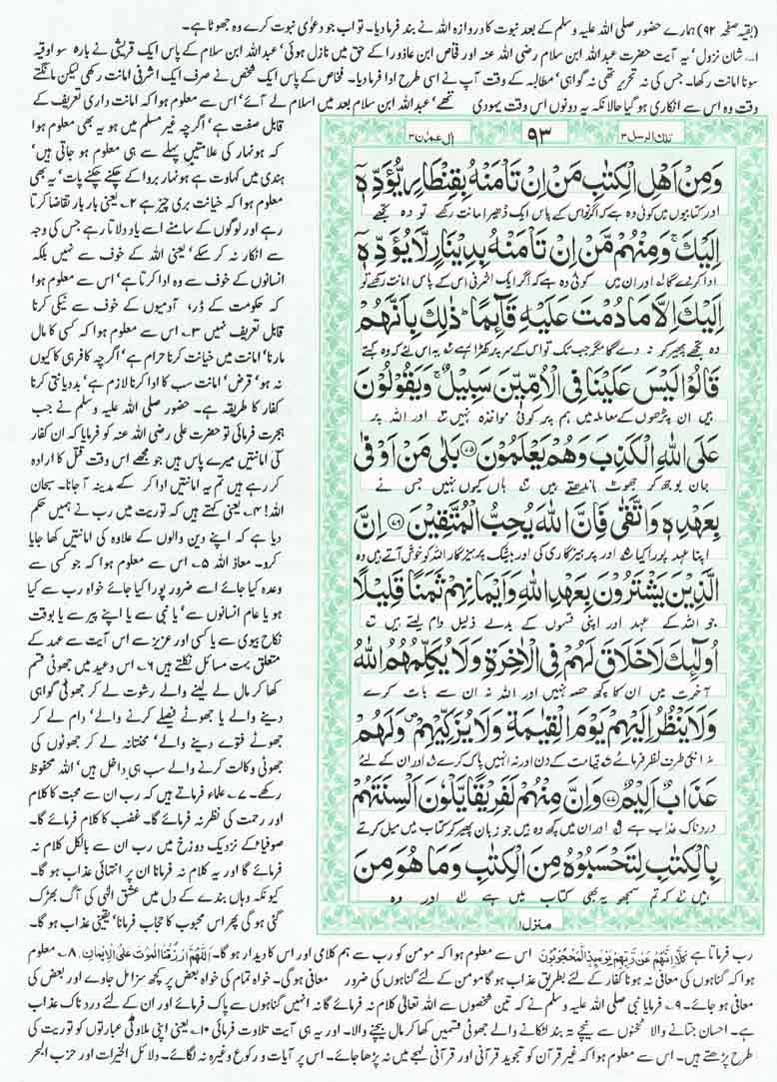 (بقیہ صفحہ ۹۲) ہمارے حضور صلی اللہ علیہ وسلم کے بعد نبوت کا دروازہ اللہ نے بند فرما دیا۔ تو اب جو دعوٰی نبوت کرے وہ جھوٹا ہے۔
۱۔ شان نزول' یہ آیت حضرت عبداللہ ابن سلام رضی اللہ عنہ اور فخاص ابن عاذورا کے حق میں نازل ہوئی' عبداللہ ابن سلام کے پاس ایک قریشی نے بارہ سو اوقیہ
سونا امانت رکھا۔ جس کی نہ تحریر تھی نہ گواہی' مطالبہ کے وقت آپ نے اسی طرح ادا فرما دیا۔ فخاص کے پاس ایک شخص نے صرف ایک اشرفی امانت رکھی لیکن مانگتے
وقت وہ اس سے انکاری ہو گیا حالانکہ یہ دونوں اس وقت یہودی تھے' عبداللہ ابن سلام بعد میں اسلام لے آئے' اس سے معلوم ہوا کہ امانت داری تعریف کے
تلك الرسل ۳
۹۳
اٰل عمرٰن ۳
وَمِنْ اَهْلِ الْكِتٰبِ مَنْ اِنْ تَاْمَنْهُ بِقِنْطَارٍ يُّؤَدِّهٖٓ
اور کتابیوں میں کوئی وہ ہے کہ اگر تو اس کے پاس ایک ڈھیر امانت رکھے تو وہ تجھے
اِلَيْكَ ۚ وَمِنْهُمْ مَّنْ اِنْ تَاْمَنْهُ بِدِيْنَارٍ لَّا يُؤَدِّهٖٓ
ادا کر دے گا اور ان میں کوئی وہ ہے کہ اگر ایک اشرفی اس کے پاس امانت رکھے تو
اِلَيْكَ اِلَّا مَا دُمْتَ عَلَيْهِ قَآئِمًا ؕ ذٰلِكَ بِاَنَّهُمْ
وہ تجھے پھیر کر نہ دے گا مگر جب تک تو اس کے سر پر کھڑا رہے یہ اس لئے کہ وہ کہتے
قَالُوْا لَيْسَ عَلَيْنَا فِي الْاُمِّيّٖنَ سَبِيْلٌ ۚ وَيَقُوْلُوْنَ
ہیں ان پڑھوں کے معاملہ میں ہم پر کوئی مواخذہ نہیں اور اللہ پر
عَلَى اللّٰهِ الْكَذِبَ وَهُمْ يَعْلَمُوْنَ ﴿۷۵﴾ بَلٰى مَنْ اَوْفٰى
جان بوجھ کر جھوٹ باندھتے ہیں ہاں کیوں نہیں جس نے
بِعَهْدِهٖ وَاتَّقٰى فَاِنَّ اللّٰهَ يُحِبُّ الْمُتَّقِيْنَ ﴿۷۶﴾ اِنَّ
اپنا عہد پورا کیا اور پرہیزگاری کی اور بیشک پرہیزگار اللہ کو خوش آتے ہیں وہ
الَّذِيْنَ يَشْتَرُوْنَ بِعَهْدِ اللّٰهِ وَاَيْمَانِهِمْ ثَمَنًا قَلِيْلًا
جو اللہ کے عہد اور اپنی قسموں کے بدلے ذلیل دام لیتے ہیں
اُولٰٓئِكَ لَا خَلَاقَ لَهُمْ فِي الْاٰخِرَةِ وَلَا يُكَلِّمُهُمُ اللّٰهُ
آخرت میں ان کا کچھ حصہ نہیں اور اللہ نہ ان سے بات کرے
وَلَا يَنْظُرُ اِلَيْهِمْ يَوْمَ الْقِيٰمَةِ وَلَا يُزَكِّيْهِمْ ۪ وَلَهُمْ
نہ انکی طرف نظر فرمائے قیامت کے دن اور نہ انہیں پاک کرے اور ان کے لئے
عَذَابٌ اَلِيْمٌ ﴿۷۷﴾ وَاِنَّ مِنْهُمْ لَفَرِيْقًا يَّلْوٗنَ اَلْسِنَتَهُمْ
دردناک عذاب ہے اور ان میں کچھ وہ ہیں جو زبان پھیر کر کتاب میں میل کرتے
بِالْكِتٰبِ لِتَحْسَبُوْهُ مِنَ الْكِتٰبِ وَمَا هُوَ مِنَ
ہیں کہ تم سمجھو یہ بھی کتاب میں ہے اور وہ
منزل ۱
قابل صفت ہے' اگرچہ غیر مسلم میں ہو یہ بھی معلوم ہوا
کہ ہونہار کی علامتیں پہلے سے ہی معلوم ہو جاتی ہیں'
ہندی میں کہاوت ہے ہونہار بروا کے چکنے چکنے پات' یہ بھی
معلوم ہوا کہ خیانت بری چیز ہے ۲۔ یعنی بار بار تقاضا کرتا
رہے اور لوگوں کے سامنے اسے یاد دلاتا رہے جس کی وجہ
سے انکار نہ کر سکے' یعنی اللہ کے خوف سے نہیں بلکہ
انسانوں کے خوف سے وہ ادا کرتا ہے' اس سے معلوم ہوا
کہ حکومت کے ڈر، آدمیوں کے خوف سے نیکی کرنا
قابل تعریف نہیں ۳۔ اس سے معلوم ہوا کہ کسی کا مال
مارنا' امانت میں خیانت کرنا حرام ہے' اگرچہ کافر ہی کا کیوں
نہ ہو' قرض' امانت سب کا ادا کرنا لازم ہے' بددیانتی کرنا
کفار کا طریقہ ہے۔ حضور صلی اللہ علیہ وسلم نے جب
ہجرت فرمائی تو حضرت علی رضی اللہ عنہ کو فرمایا کہ ان کفار
کی امانتیں میرے پاس ہیں جو مجھے اس وقت قتل کا ارادہ
کر رہے ہیں تم یہ امانتیں ادا کر کے مدینہ آ جانا۔ سبحان
اللہ! ۴۔ یعنی کہتے ہیں کہ توریت میں رب نے ہمیں حکم
دیا ہے کہ اپنے دین والوں کے علاوہ کی امانتیں کھا جایا
کرو۔ معاذ اللہ ۵۔ اس سے معلوم ہوا کہ جو کسی سے
وعدہ کیا جائے اسے ضرور پورا کیا جائے خواہ رب سے کیا
ہو یا عام انسانوں سے' یا نبی سے یا اپنے پیر سے یا بوقت
نکاح بیوی سے یا کسی اور عزیز سے اس آیت سے عہد کے
متعلق بہت مسائل نکلتے ہیں ۶۔ اس وعید میں جھوٹی قسم
کھا کر مال لے لینے والے رشوت لے کر جھوٹی گواہی
دینے والے یا جھوٹے فیصلے کرنے والے' دام لے کر
جھوٹے فتوے دینے والے' محنتانہ لے کر جھوٹوں کی
جھوٹی وکالت کرنے والے سب ہی داخل ہیں' اللہ محفوظ
رکھے۔ ۷۔ علماء فرماتے ہیں کہ رب ان سے محبت کا کلام
اور رحمت کی نظر نہ فرمائے گا۔ غضب کا کلام فرمائے گا۔
صوفیاء کے نزدیک دوزخ میں رب ان سے بالکل کلام نہ
فرمائے گا اور یہ کلام نہ فرمانا ان پر انتہائی عذاب ہو گا۔
کیونکہ وہاں بندے کے دل میں عشق الٰہی کی آگ بھڑک
گئی ہو گی پھر اس محبوب کا حجاب فرمانا' یقینی عذاب ہو گا۔
رب فرماتا ہے كَلَّآ اِنَّهُمْ عَنْ رَّبِّهِمْ يَوْمَئِذٍ لَّمَحْجُوْبُوْنَ اس سے معلوم ہوا کہ مومن کو رب سے ہم کلامی اور اس کا دیدار ہو گا۔ اَللّٰهُمَّ ارْزُقْنَا الْمَوْتَ عَلَى الْاِيْمَانِ ۸۔ معلوم
ہوا کہ گناہوں کی معافی نہ ہونا کفار کے لئے بطریق عذاب ہو گا مومن کے لئے گناہوں کی ضرور معافی ہو گی۔ خواہ تمام کی خواہ بعض پر کچھ سزا مل جاوے اور بعض کی
معافی ہو جائے۔ ۹۔ فرمایا نبی صلی اللہ علیہ وسلم نے کہ تین شخصوں سے اللہ تعالٰی کلام نہ فرمائے گا نہ انہیں گناہوں سے پاک فرمائے اور ان کے لئے دردناک عذاب
ہے۔ احسان جتانے والا ٹخنوں سے نیچے تہ بند لٹکانے والے جھوٹی قسمیں کھا کر مال بیچنے والا۔ اور یہ ہی آیت تلاوت فرمائی ۱۰۔ یعنی اپنی ملاوٹی عبارتوں کو توریت کی
طرح پڑھتے ہیں۔ اس سے معلوم ہوا کہ غیر قرآن کو تجوید قرآنی اور قرآنی لہجے میں نہ پڑھا جائے۔ اس پر آیات و رکوع وغیرہ نہ لگائے۔ دلائل الخیرات اور حزب البحر